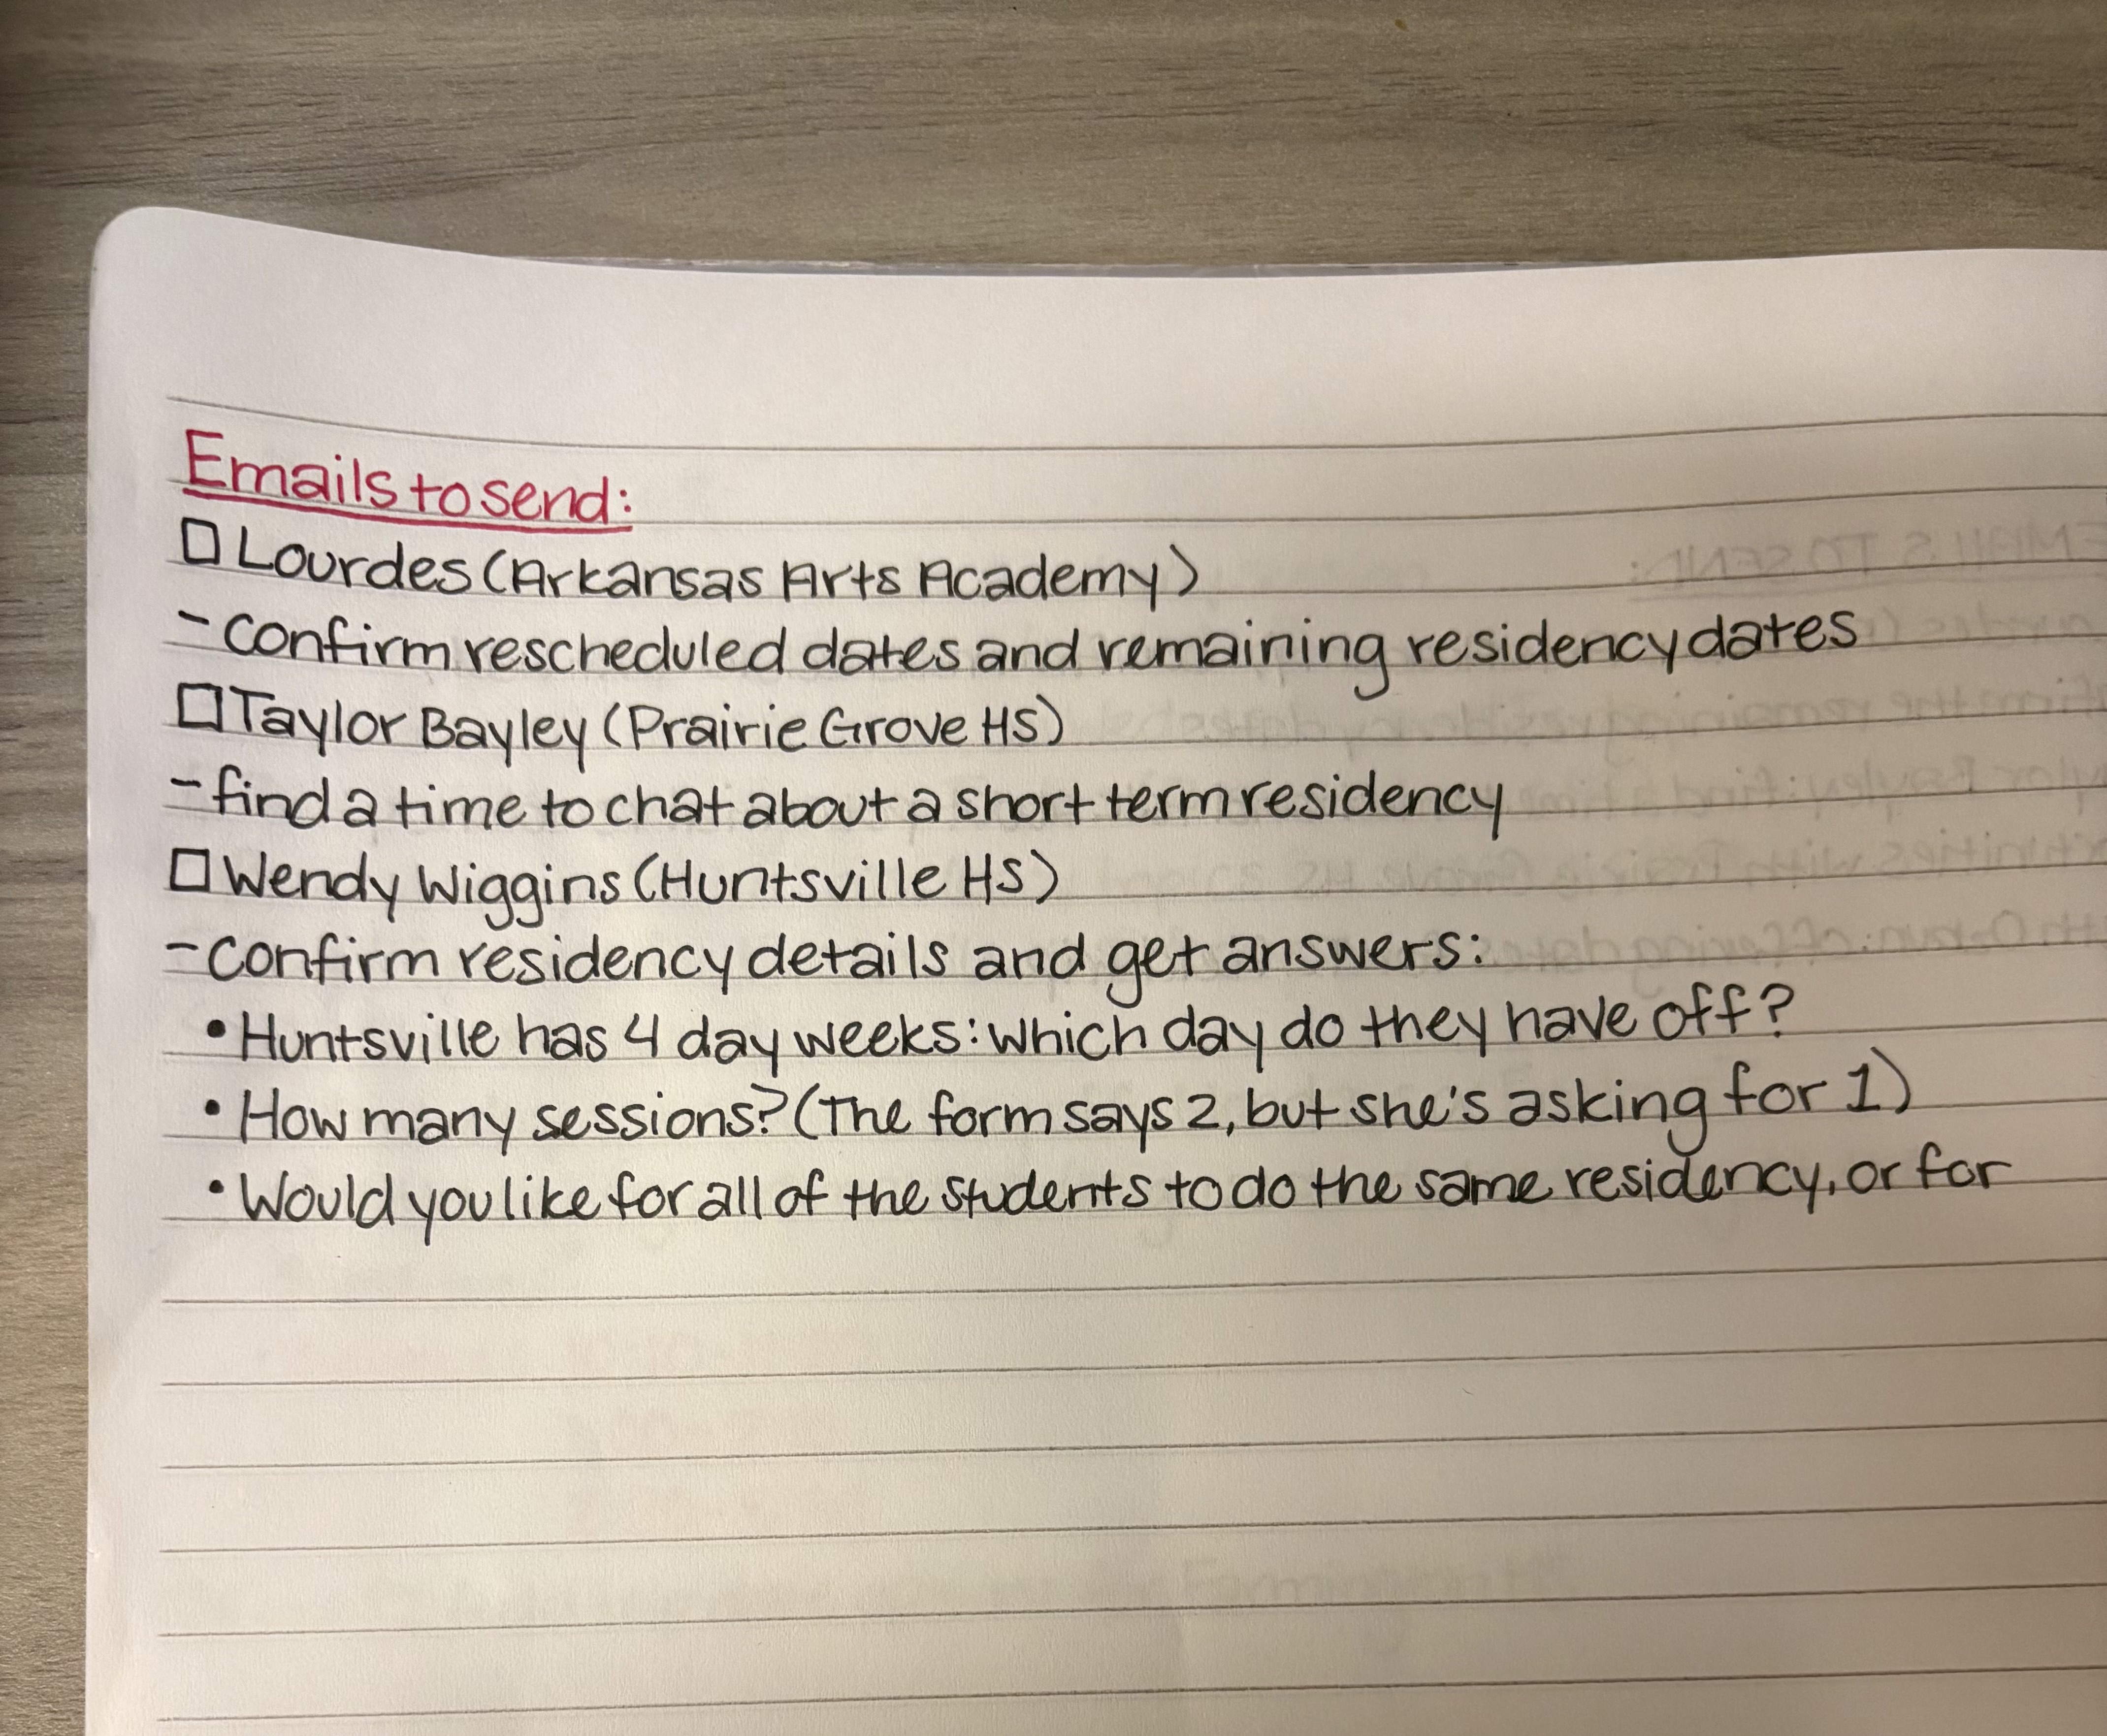 Emails to send:
☐ Lourdes (Arkansas Arts Academy)
- confirm rescheduled dates and remaining residency dates
☐ Taylor Bayley (Prairie Grove HS)
- find a time to chat about a short term residency
☐ Wendy Wiggins (Huntsville HS)
- confirm residency details and get answers:
• Huntsville has 4 day weeks: which day do they have off?
• How many sessions? (The form says 2, but she's asking for 1)
• Would you like for all of the students to do the same residency, or for